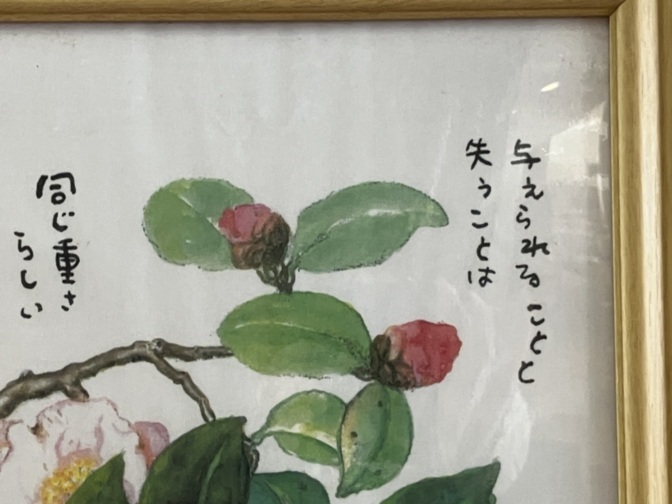 与えられることと
失うことは
同じ重さ
らしい